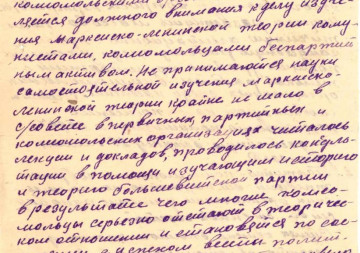 комсомольскими
ляется должного внимания к делу изуче-
ния Марксиско-ленинской теории комму-
нистами, комсомольцами беспартий
ным активом. Не принимаются науки
самостоятельной изучения марксиско-
ленинской теории крайне не мало в
с/совете в первичных партийных и
комсомольских организациях читалось
лекции и докладов, проводилось консуль-
таций в помощи изучающим историю
и теорию большевитской партии
в результате чего многие комсо-
мольцы серьезно отстают в теориче-
ском отношении и становятся по
с успехом вести полит.